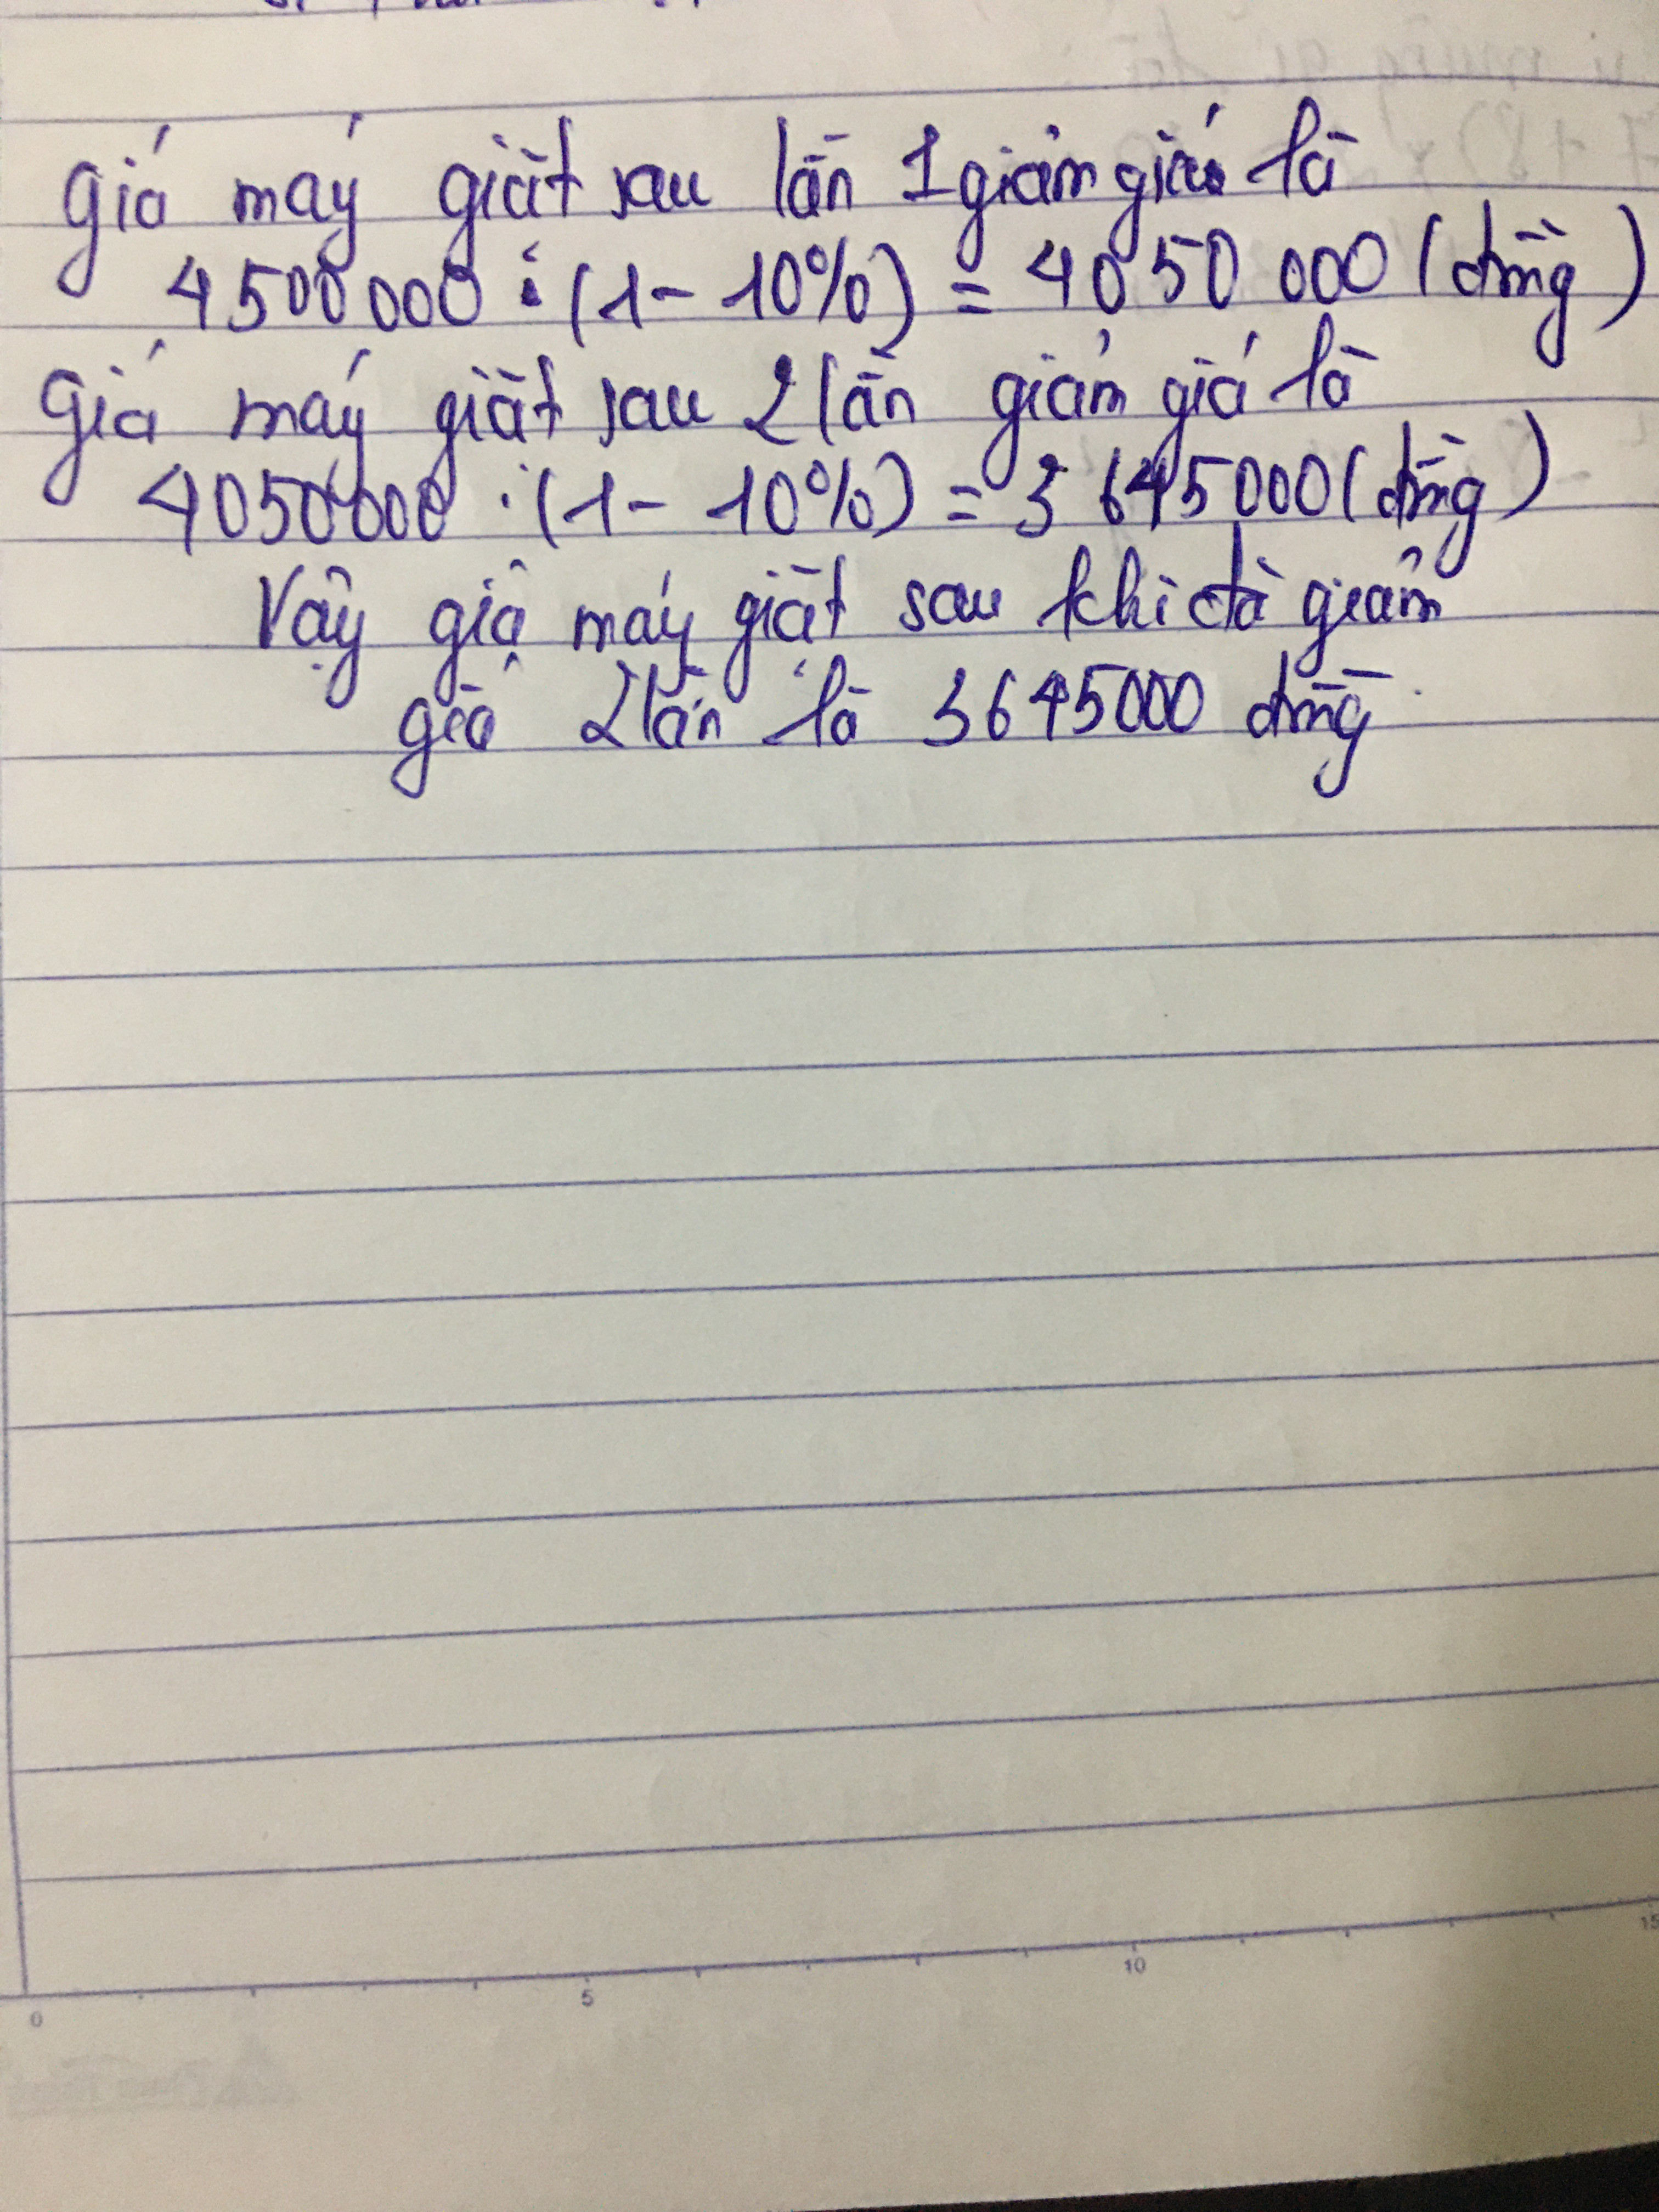 Giá máy giặt sau lần 1 giảm giá là
4500000 . (1 - 10%) = 4050 000 (đồng)
Giá máy giặt sau 2 lần giảm giá là
4050000 . (1 - 10%) = 3 645000 (đồng)
Vậy giá máy giặt sau khi đã giảm
giá 2 lần là 3645000 đồng
0 5 10 15